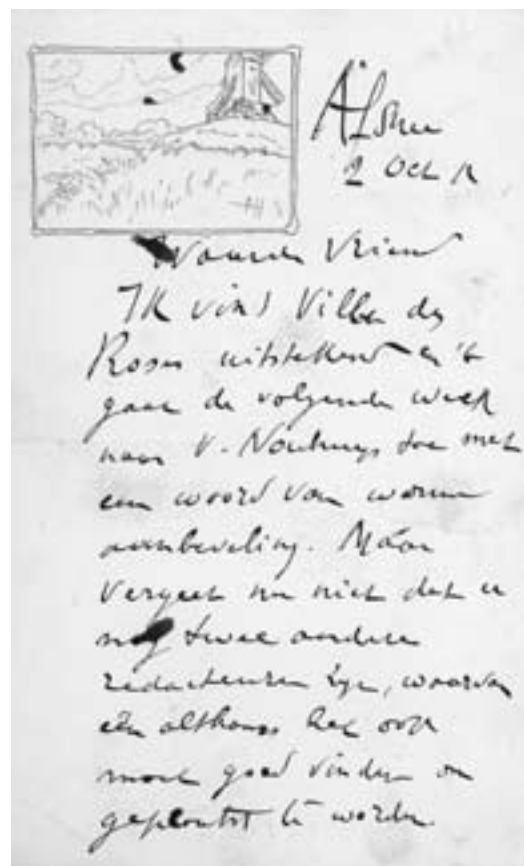 2 Oct
Waarde Vriend
Ik vind Villa des
Roses uitstekend en 't
gaat de volgende week
naar V. Nouhuys toe met
een woord van warme
aanbeveling. Máar
vergeet nu niet dat er
nog twee andere
redacteuren zijn, waarvan
eén althans het ook
moet goed vinden om
geplaatst te worden.